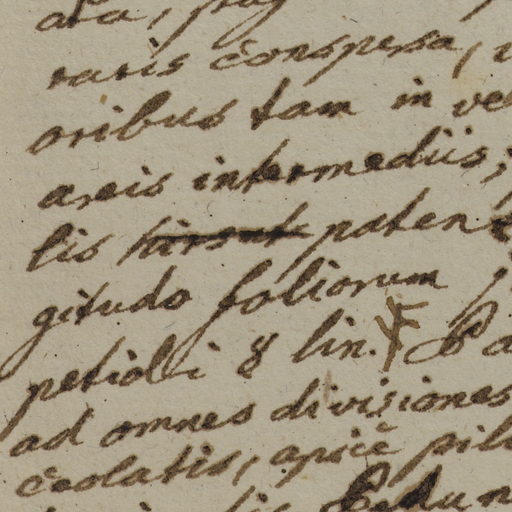 raris conspersa,
oribus tam in ve
areis intermediis;
lis hirsut paten
gitudo foliorum
petioli 8 lin.
ad omnes divisiones
ceolatis, apice pil